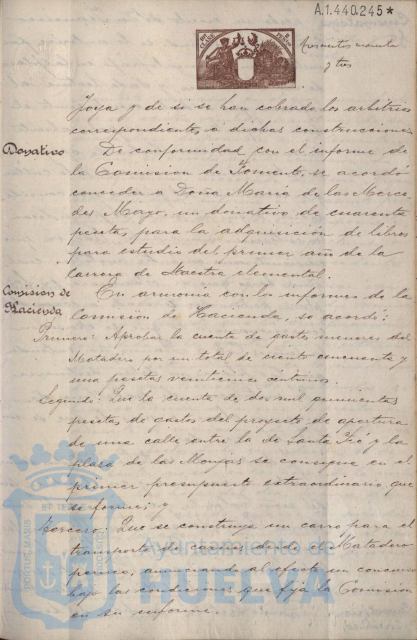 A.1.440.245*
Trescientos noventa
y tres
Joya y de si se han cobrado los arbitrios
correspondientes a dichas construcciones
Donativo
De conformidad con el informe de
la Comision de Fomento, se acordó
conceder a Doña Maria de las Merce-
des Mayo, un donativo de cuarenta
pesetas, para la adquisición de libros
para estudio del primer año de la
carrera de Maestra elemental.
Comision de
Hacienda
En armonia con los informes de la
Comision de Hacienda se acordó:
Primero: Aprobar la cuenta de gastos menores del
Matadero por un total de ciento cincuenta y
una pesetas veinticinco céntimos.
Segundo: Que la cuenta de dos mil quinientas
pesetas de gastos del proyecto de apertura
de una calle entre la de Santa Fé y la
plaza de las Monjas se consigne en el
primer presupuesto extraordinario que
se forme; y
Tercero: Que se construya un carro para el
transporte de carnes desde el Matadero
anunciando al efecto un concurso
bajo las condiciones que fija la Comision
en su informe.
Ayuntamiento de
HUELVA